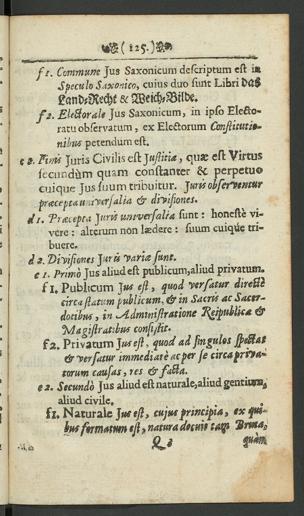 (125.)
f 1. Commune Jus Saxonicum descriptum est in
Speculo Saxonico, cuius duo sunt Libri das
Land-Recht & Weich-Bilde.
f 2. Electorale Jus Saxonicum, in ipso Electo-
ratu observatum, ex Electorum Constitutio-
nibus petendum est.
c 2. Finis Juris Civilis est Justitia, quæ est Virtus
secundùm quam constanter & perpetuo
cuique Jus suum tribuitur. Juris observentur
præcepta universalia & divisiones.
d 1. Præcepta Juris universalia sunt: honestè vi-
vere: alterum non lædere: suum cuique tri-
buere.
d 2. Divisiones Juris variæ sunt.
e 1. Primò Jus aliud est publicum, aliud privatum.
f 1. Publicum Jus est, quod versatur directè
circa statum publicum, & in Sacris ac Sacer-
dotibus, in Administratione Reipublicæ &
Magistratibus consistit.
f 2. Privatum Jus est, quod ad singulos spectat
& versatur immediatè ac per se circa priva-
torum causas, res & facta.
e 2. Secundò Jus aliud est naturale, aliud gentium,
aliud civile.
f 1. Naturale Jus est, cujus principia, ex qui-
bus formatum est, natura docuit tam Bruta,
Q 3 quàm